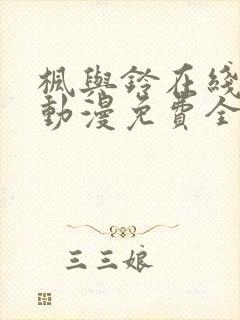 楓與鈴在綫
動漫免費全
三三娘